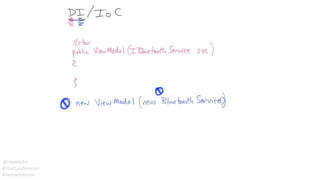 DI/IoC
//ctor
public ViewModel(IBluetooth Service svc)
{
}
new ViewModel(new Bluetooth Service())